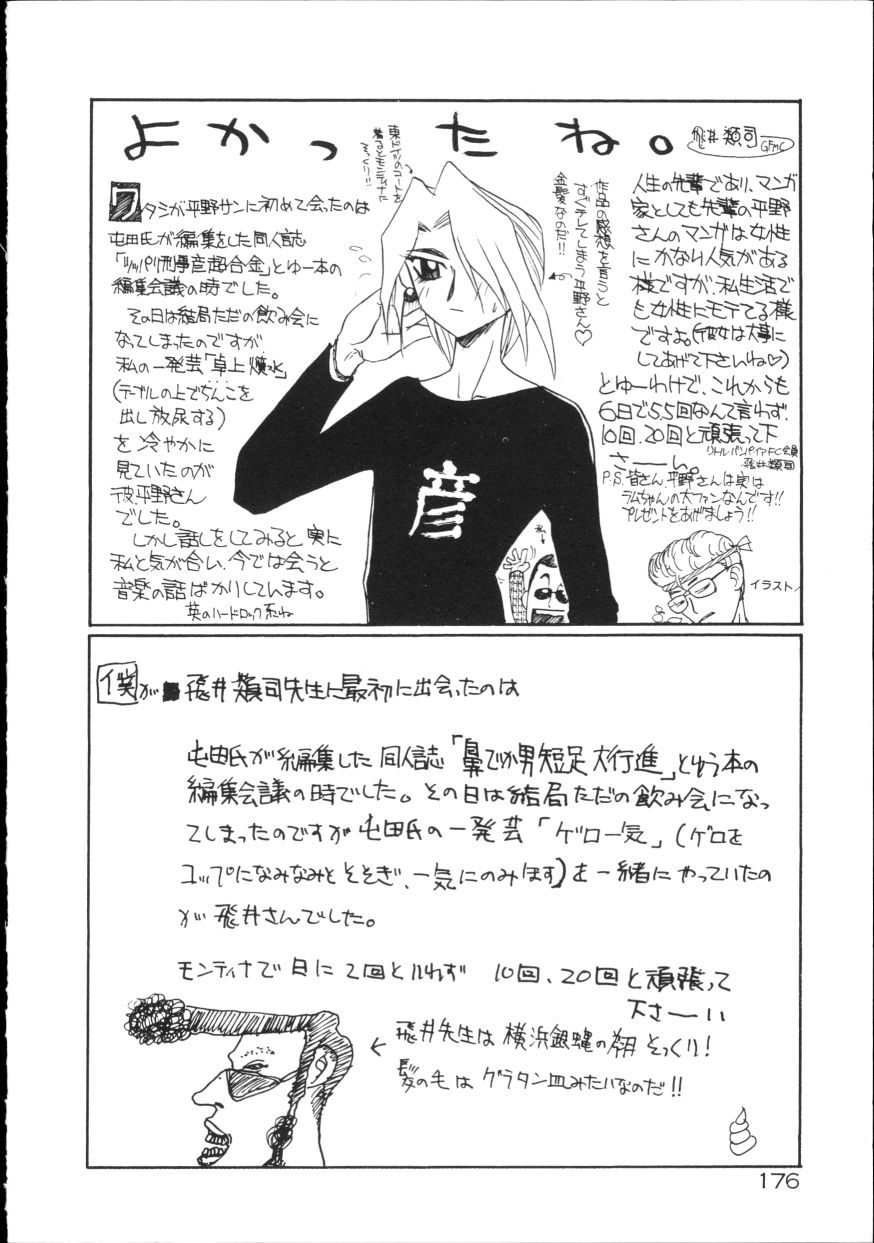 よかったね。
飛井類司
GFMC
東ドイツのコートを
着るとモンティナた
そっくり!!
ワタシが平野サンに初めて会ったのは
屯田氏が編集をした同人誌
「ツッパリ刑事彦超合金」とゆー本の
編集会議の時でした。
その日は結局ただの飲み会に
なってしまったのですが
私の一発芸「卓上噴水」
(テーブルの上でちんこを
出し放尿する)
を冷やかに
見ていたのが
彼、平野さん
でした。
しかし話しをしてみると実に
私と気が合い、今では会うと
音楽の話ばかりしています。
英のハードロック系ね
作品の感想を言うと
すぐテレてしまう平野さん♡
金髪なのだ!!
彦
私
人生の先輩であり、マンガ
家としても先輩の平野
さんのマンガは女性
にかなり人気がある
様ですが、私生活で
も女性にモテてる様
ですよ(彼女は大事に
してあげて下さいね♡)
とゆーわけで、これからも
6日で55回なんて言わず、
10回、20回と頑張って下
さーい。
リトルバンパイアFC会員
飛井類司
P.S. 皆さん、平野さんは実は
ラムちゃんの大ファンなんです!!
プレゼントをあげましょう!!
イラスト/
僕が 飛井類司先生に最初に出会ったのは
屯田氏が編集した同人誌「鼻でか男短足大行進」とゆう本の
編集会議の時でした。その日は結局ただの飲み会になっ
てしまったのですが屯田氏の一発芸「ゲロ一気」(ゲロを
コップになみなみとそそぎ、一気にのみほす)を一緒にやっていたの
が飛井さんでした。
モンティナで日に2回といわず 10回、20回と頑張って
下さーい
飛井先生は横浜銀蠅の翔そっくり!
髪の毛はグラタン皿みたいなのだ!!
176